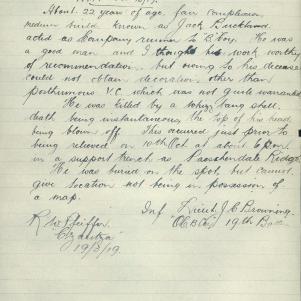 About 22 year of age, fair complexion
medium build, known as Jack Buckland
acted as Company runner to B Coy. He was
a good man and I thought his work worthy
of recommendation, but owing to his decease
could not obtain decoration, other than
posthumous V.C. which was not quite warranted
He was killed by a whizz bang shell,
death being instantaneous, the top of his head
being blown off. This occured just prior to
being relieved on 10th Oct at about 6 pm
in a support trench at Passchendale Ridge.
He was buried on the spot, but cannot
give location not being in possession of
a map.
Inf Lieut J. C. Browning.
R W Pfeiffer. O.C. B Coy 19th Batt
19/3/19.